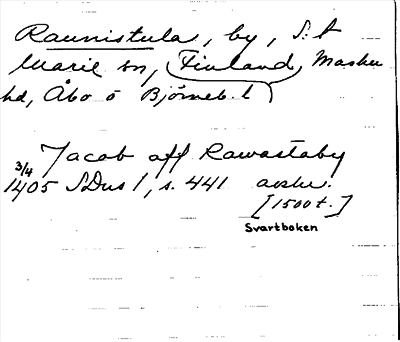 Raunistula, by, S:t
Marie sn, (Finland, Masku
hd, Åbo o Björneb. l)
Jacob aff Rawastaby
3/4
1405 SDns 1, s. 441 avskr.
[1500 t.]
Svartboken